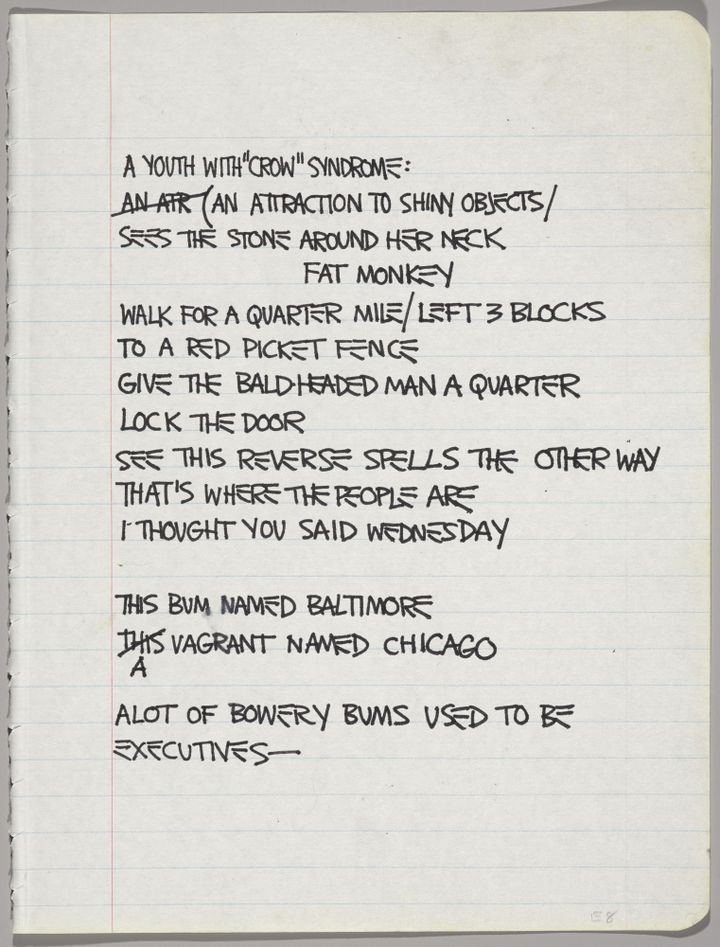 A YOUTH WITH "CROW" SYNDROME:
AN ATR (AN ATTRACTION TO SHINY OBJECTS/
SEES THE STONE AROUND HER NECK
FAT MONKEY
WALK FOR A QUARTER MILE/LEFT 3 BLOCKS
TO A RED PICKET FENCE
GIVE THE BALDHEADED MAN A QUARTER
LOCK THE DOOR
SEE THIS REVERSE SPELLS THE OTHER WAY
THAT'S WHERE THE PEOPLE ARE
I THOUGHT YOU SAID WEDNESDAY
THIS BUM NAMED BALTIMORE
THIS VAGRANT NAMED CHICAGO
A
ALOT OF BOWERY BUMS USED TO BE
EXECUTIVES—
E8